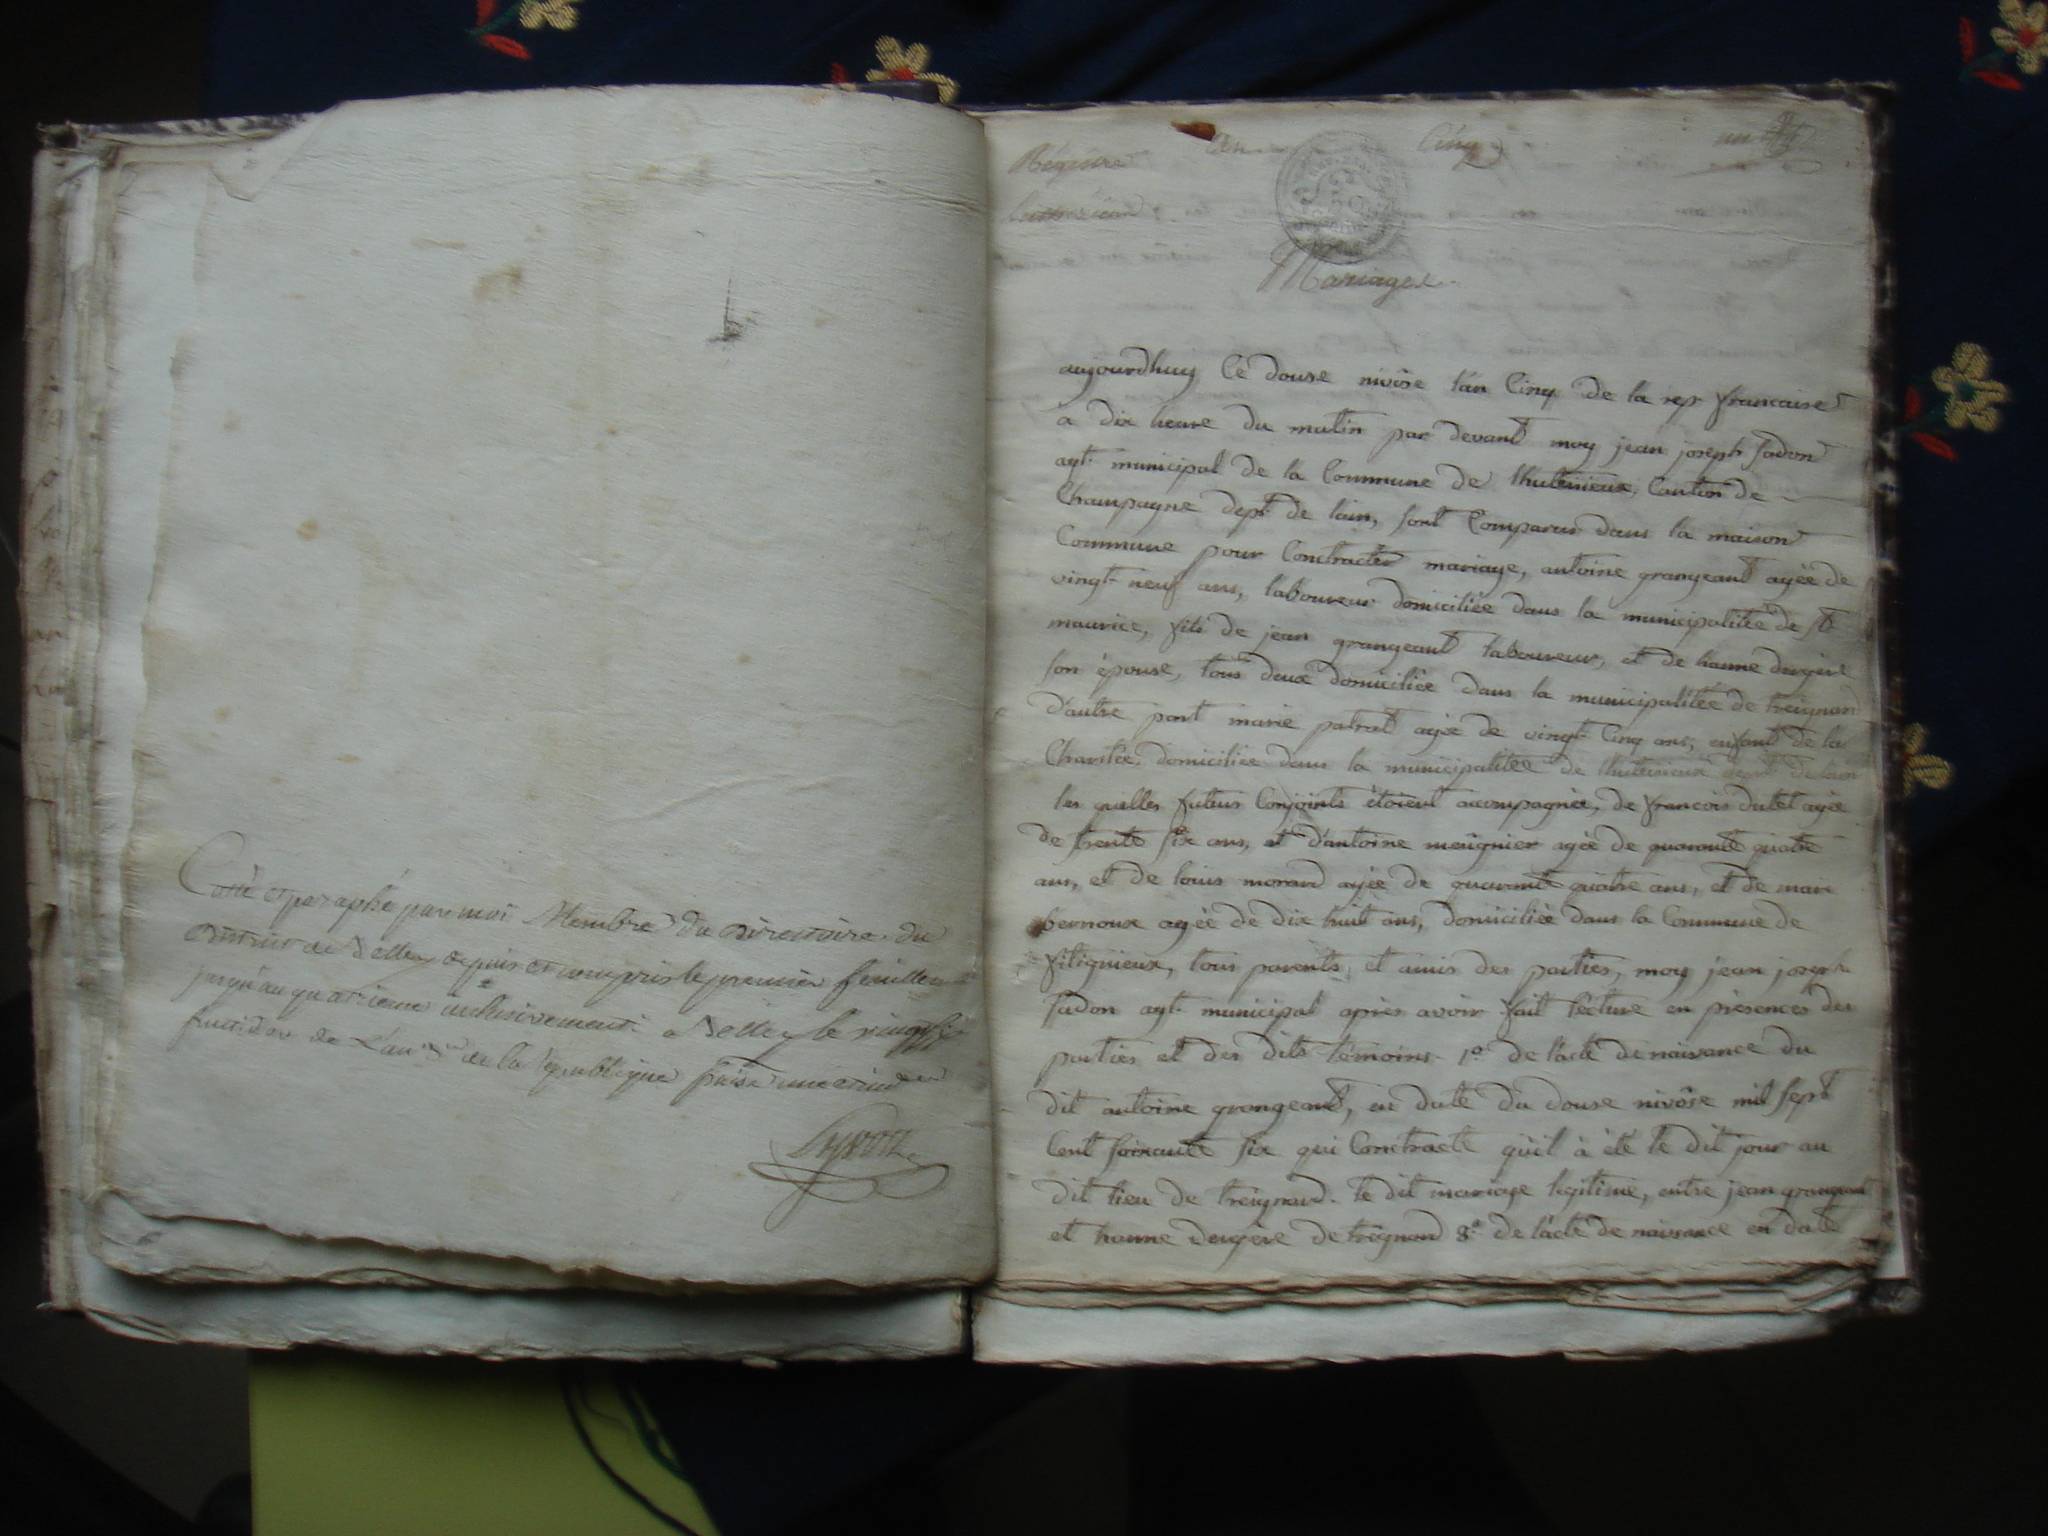 Coté et paraphé par moi Membre du Directoire du
District de Belley depuis et compris le premier feuillet
jusqu'au quatrieme inclusivement a Belley le vingt six
fructidor de L'an de la Republique
Registre an Cinq
Mariages
aujourdhuy le douse nivôse l'an Cinq de la rep francaise
a dix heure du matin par devant moy jean joseph
agt. municipal de la Commune de thutezieux, Canton de
Champagne dept de lain, sont Comparus dans la maison
Commune pour Contracter mariage, antoine grangeant agée de
vingt neuf ans, laboureur domiciliée dans la municipalitée de st
maurice, fils de jean grangeant laboureur, et de
son épouse, tous deux domiciliée dans la municipalitée de treignard
d'autre part marie patrat agée de vingt Cinq ans, enfant de la
Charitée, domiciliée dans la municipalitée de thutezieux dept de lain
les quelles futurs Conjoints étoient acompagnée, de francois dutel agée
de trente six ans, et d'antoine meûgnier agée de quarante quatre
ans, et de louis morand agée de quarante quatre ans, et de mari
bernoux agée de dix huit ans, domiciliée dans la Commune de
fitignieux, tous parents et amis des parties, moy jean joseph
agt. municipal aprés avoir fait lécture en présences des
parties et des dits témoins 1º de lácte de naissance du
dit antoine grangeant, en date du douse nivôse mil sept
Cent soixante six qui Contracte qu'il à été le dit jour au
dit lieu de treignard. le dit mariage legitime, entre jean grangeant
et de treignard de lácte de naissance en date